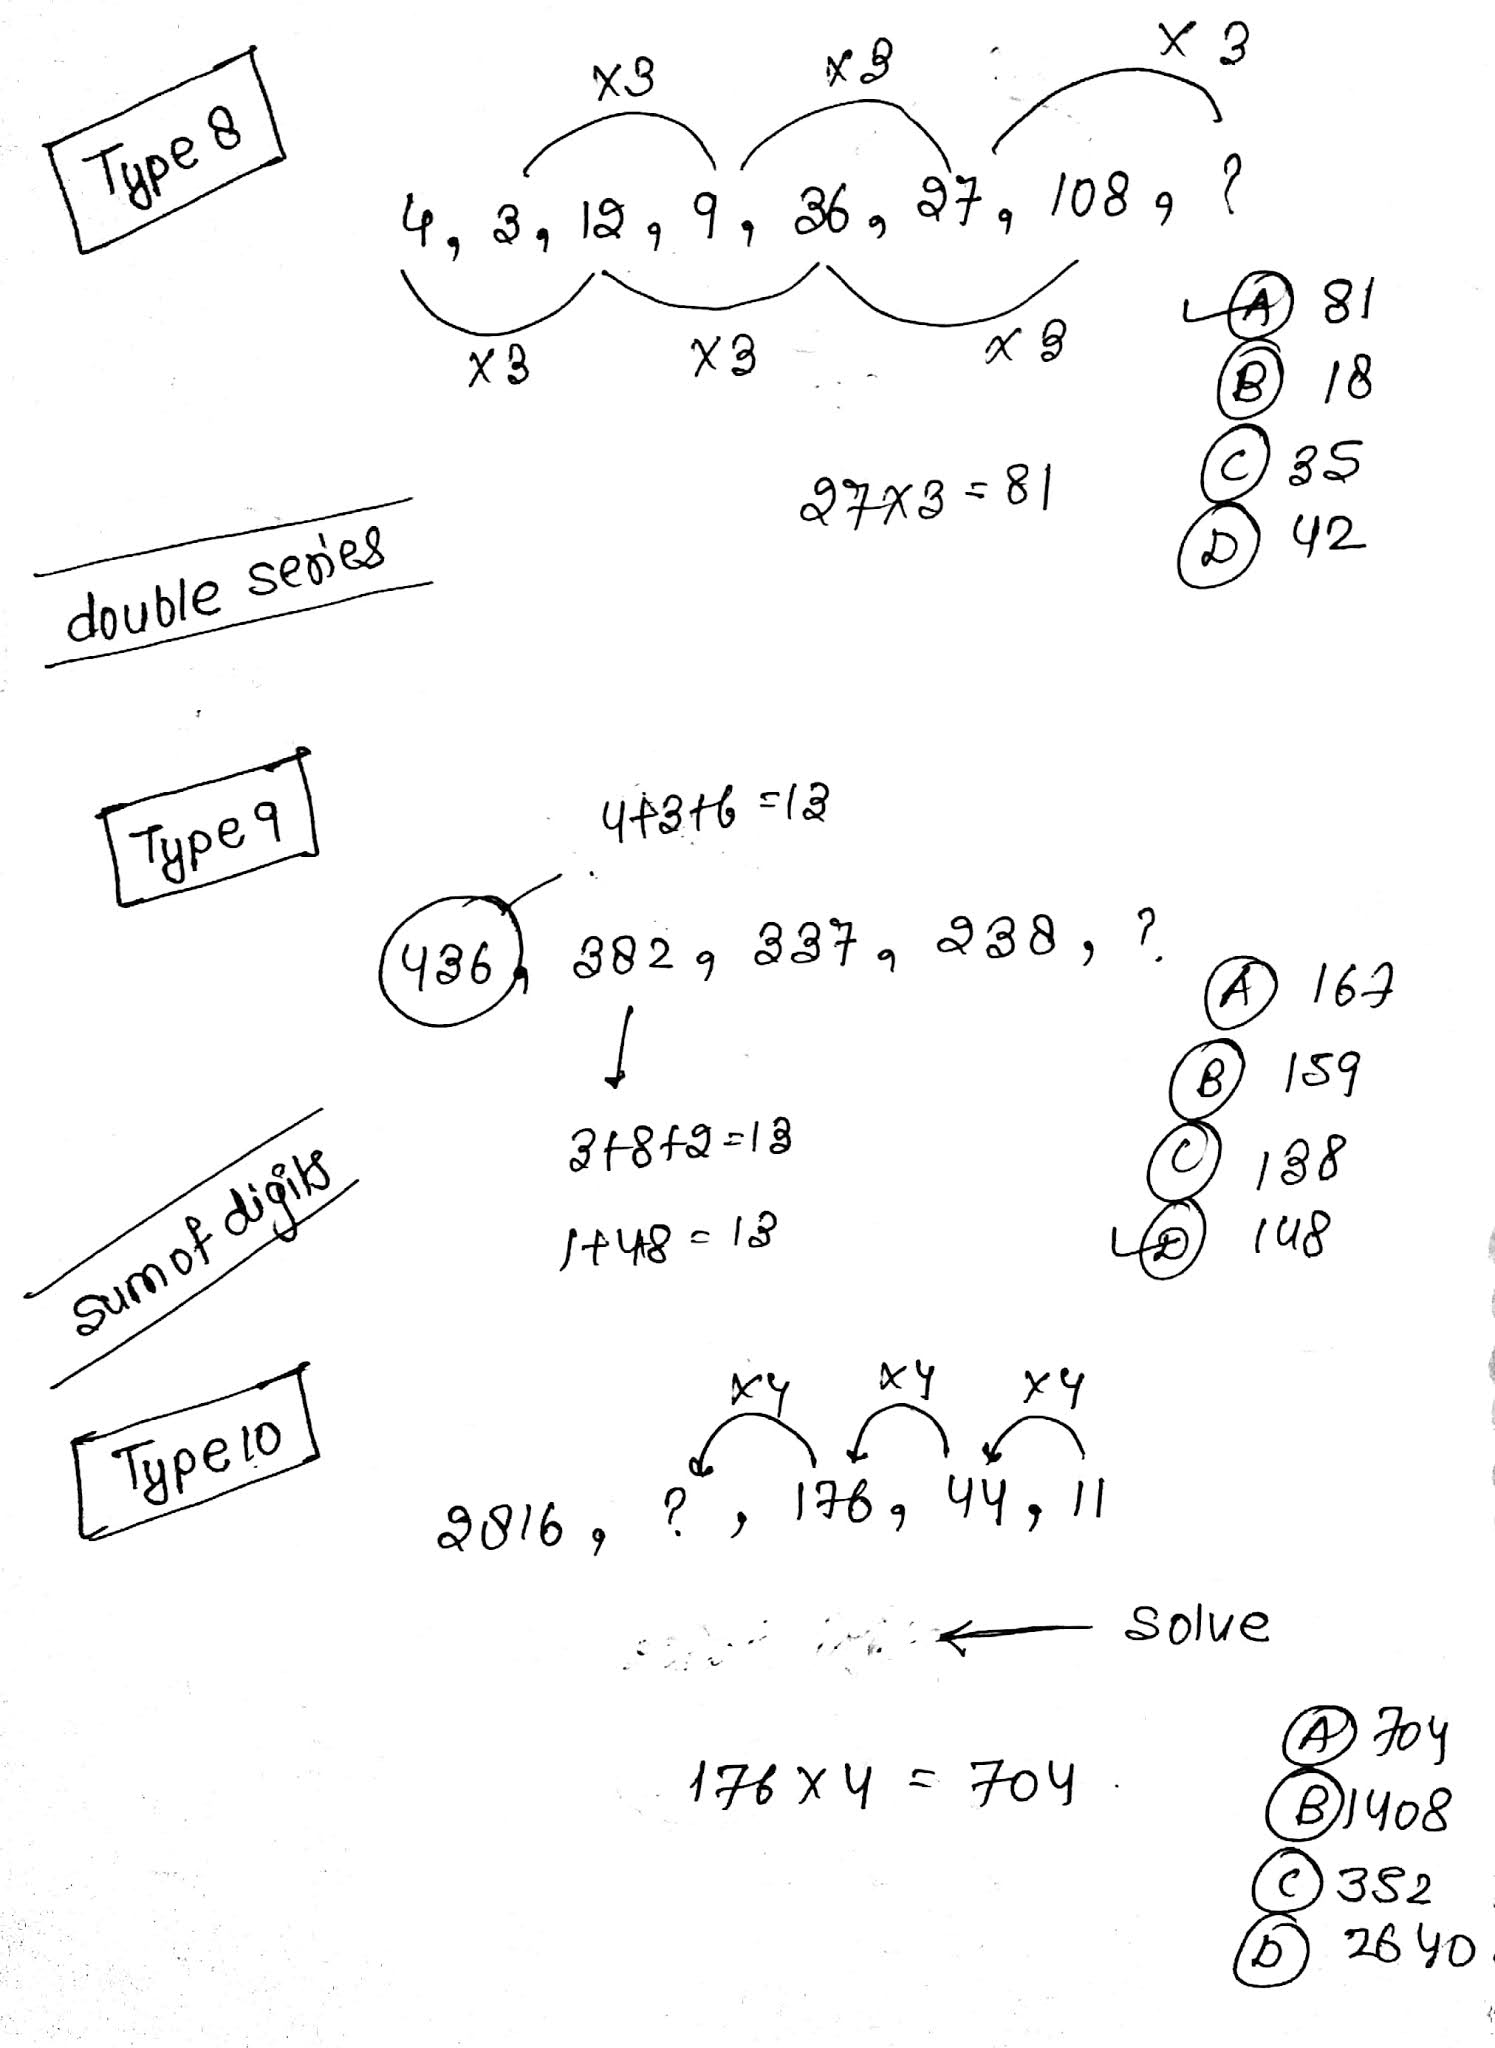 Type 8
×3 ×3 ×3
4, 3, 12, 9, 36, 27, 108, ?
×3 ×3 ×3
A 81
B 18
C 35
D 42
27×3=81
double series
Type 9
4+3+6=13
436, 382, 337, 238, ?
A 167
B 159
C 138
D 148
3+8+2=13
1+48=13
sum of digits
Type 10
×4 ×4 ×4
2816, ?, 176, 44, 11
← Solve
176×4=704
A 704
B 1408
C 352
D 2640